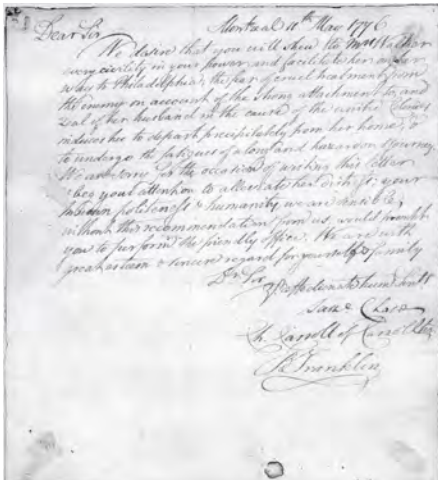 Montreal 11th May 1776
Dear Sir
We desire that you will shew the Mrs Walker
every civility in your power and facilitate her on her
way to Philadelphia; the fear of cruel treatment from
the enemy on account of the strong attachment to, and
zeal of her husband in the cause of the united Colonies
induces her to depart precipitately from her home; &
to undergo the fatigues of a long and hazardous journey.
We are sorry for the occasion of writing this letter
& beg your attention to alleviate her distress; your
known politeness & humanity, we are sensible,
without this recommendation from us, would prompt
you to perform the friendly office. We are with
great esteem & sincere regard for yourself & family
Dr Sir
Yr affectionate hum: Servts
Saml Chase
Ch. Carroll of Carrollton
B Franklin